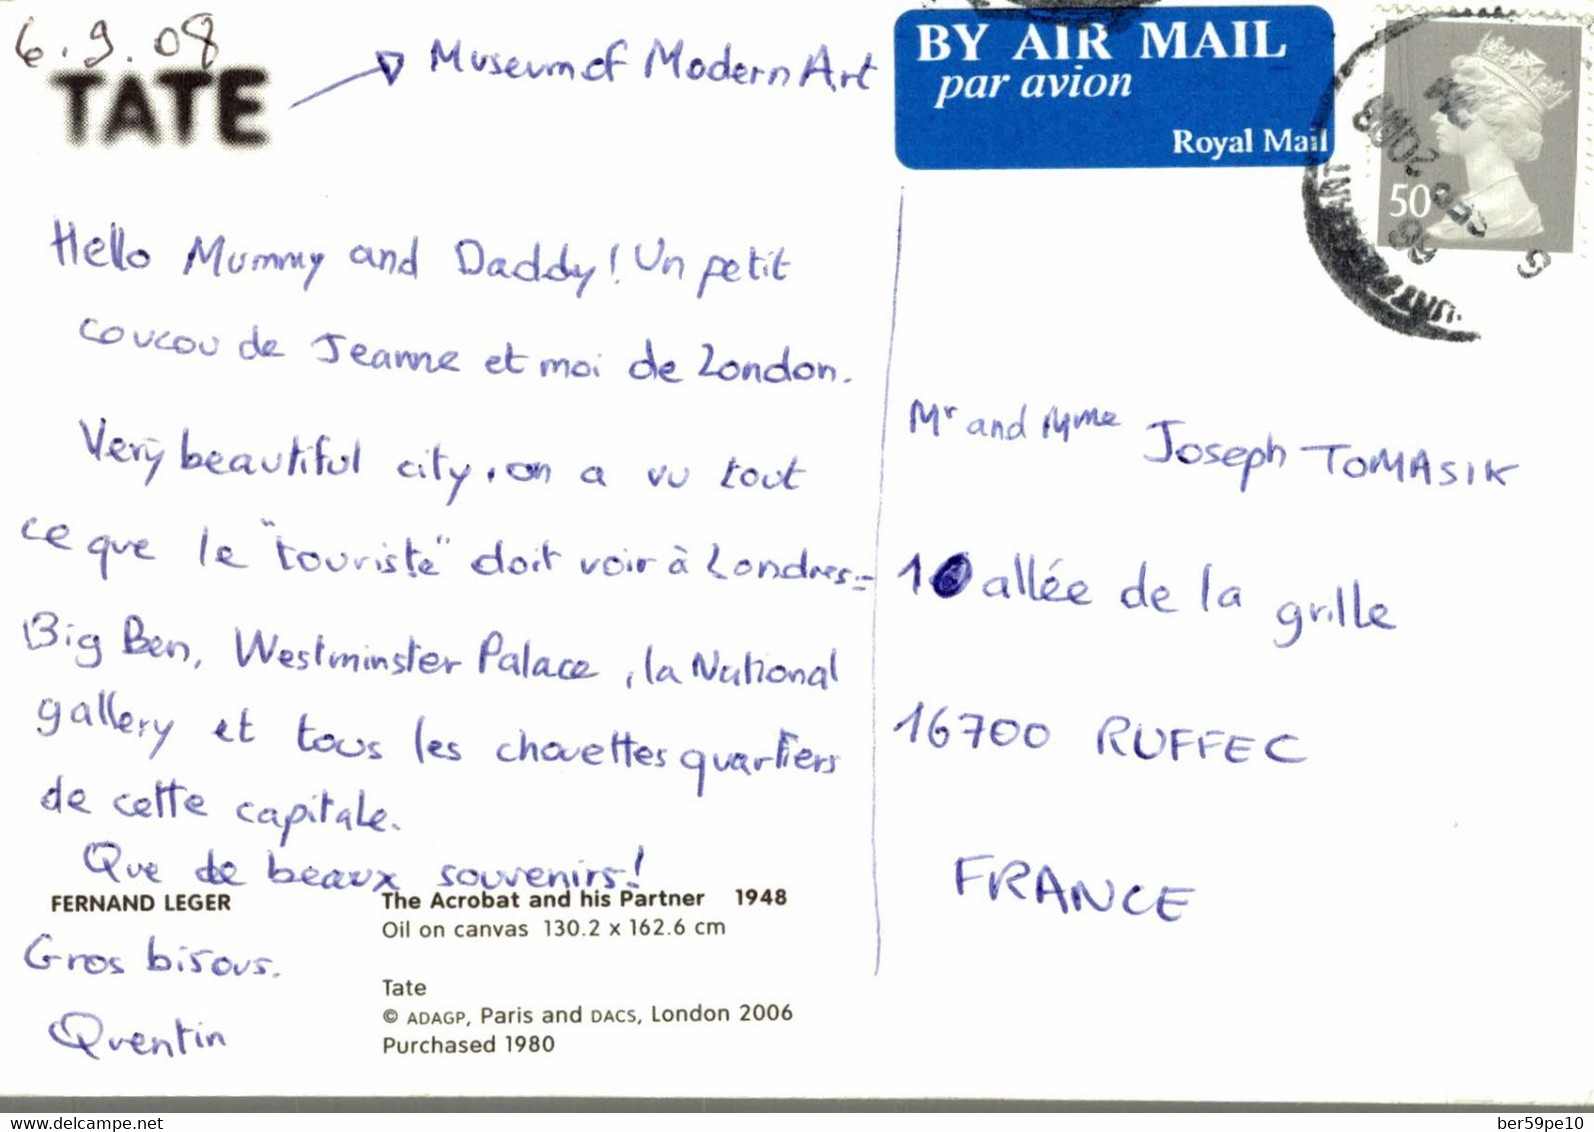 6.9.08
TATE
Museum of Modern Art
BY AIR MAIL
par avion
Royal Mail
50
Hello Mummy and Daddy! Un petit
coucou de Jeanne et moi de London.
Very beautiful city, on a vu tout
ce que le "touriste" doit voir à Londres :
Big Ben, Westminster Palace, la National
gallery et tous les chouettes quartiers
de cette capitale.
Que de beaux souvenirs!
FERNAND LEGER
The Acrobat and his Partner 1948
Oil on canvas 130.2 x 162.6 cm
Gros bisous.
Quentin
Tate
© ADAGP, Paris and DACS, London 2006
Purchased 1980
Mr and Mme Joseph TOMASIK
10 allée de la grille
16700 RUFFEC
FRANCE
www.delcampe.net
ber59pe10